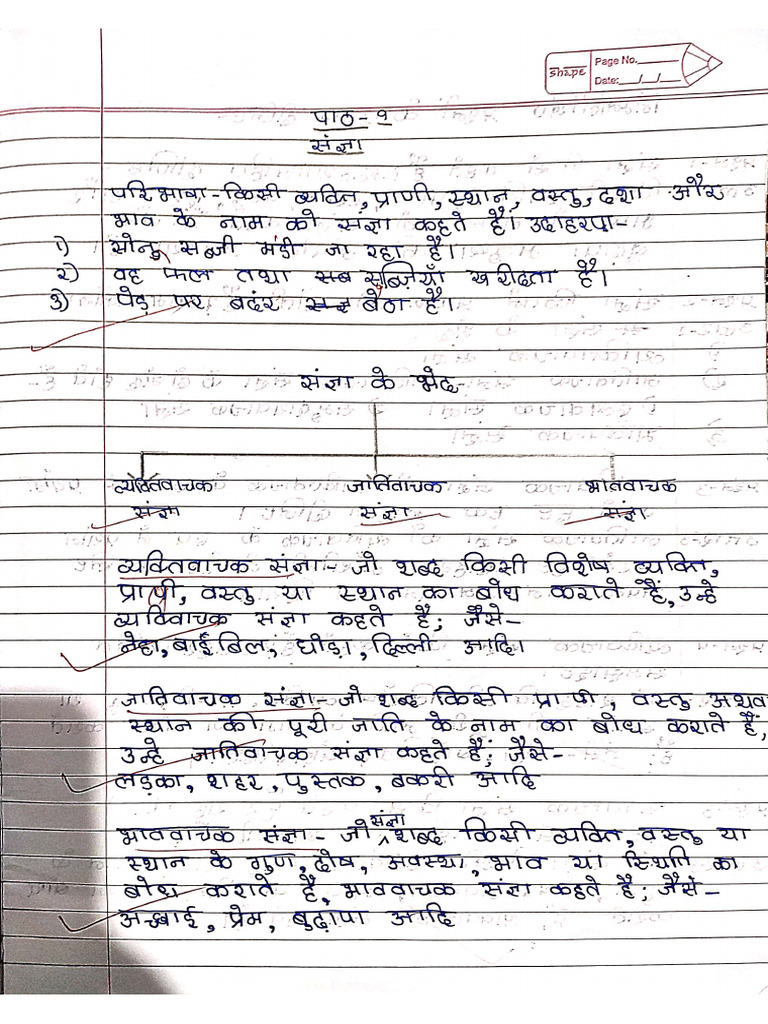 shape
Page No.
Date: / /
पाठ-१
संज्ञा
परिभाषा-किसी व्यक्ति, प्राणी, स्थान, वस्तु, दशा और
भाव के नाम को संज्ञा कहते हैं। उदाहरण-
1) सोनु सब्जी मंडी जा रहा है।
२) वह फल तथा सब सब्ज़ियाँ खरीदता है।
3) पेड़ पर बदंर बैठा है।
संज्ञा के भेद-
व्यक्तिवाचक जातिवाचक भाववाचक
संज्ञा संज्ञा संज्ञा
व्यक्तिवाचक संज्ञा- जो शब्द किसी विशेष व्यक्ति,
प्राणी, वस्तु या स्थान का बोध कराते हैं, उन्हे
व्यक्तिवाचक संज्ञा कहते है; जैसे-
नेहा, बाईबिल, घोड़ा, दिल्ली आदि।
जातिवाचक संज्ञा- जो शब्द किसी प्राणी, वस्तु अथव
स्थान की पूरी जाति के नाम का बोध कराते हैं,
उन्हे जातिवाचक संज्ञा कहते हैं; जैसे-
लड़का, शहर, पुस्तक, बकरी आदि
भाववाचक संज्ञा- जो संज्ञा शब्द किसी व्यक्ति, वस्तु या
स्थान के गुण, दोष, अवस्था, भाव या स्थिति का
बोध कराते है, भाववाचक संज्ञा कहते है; जैसे-
अच्छाई, प्रेम, बुढ़ापा आदि